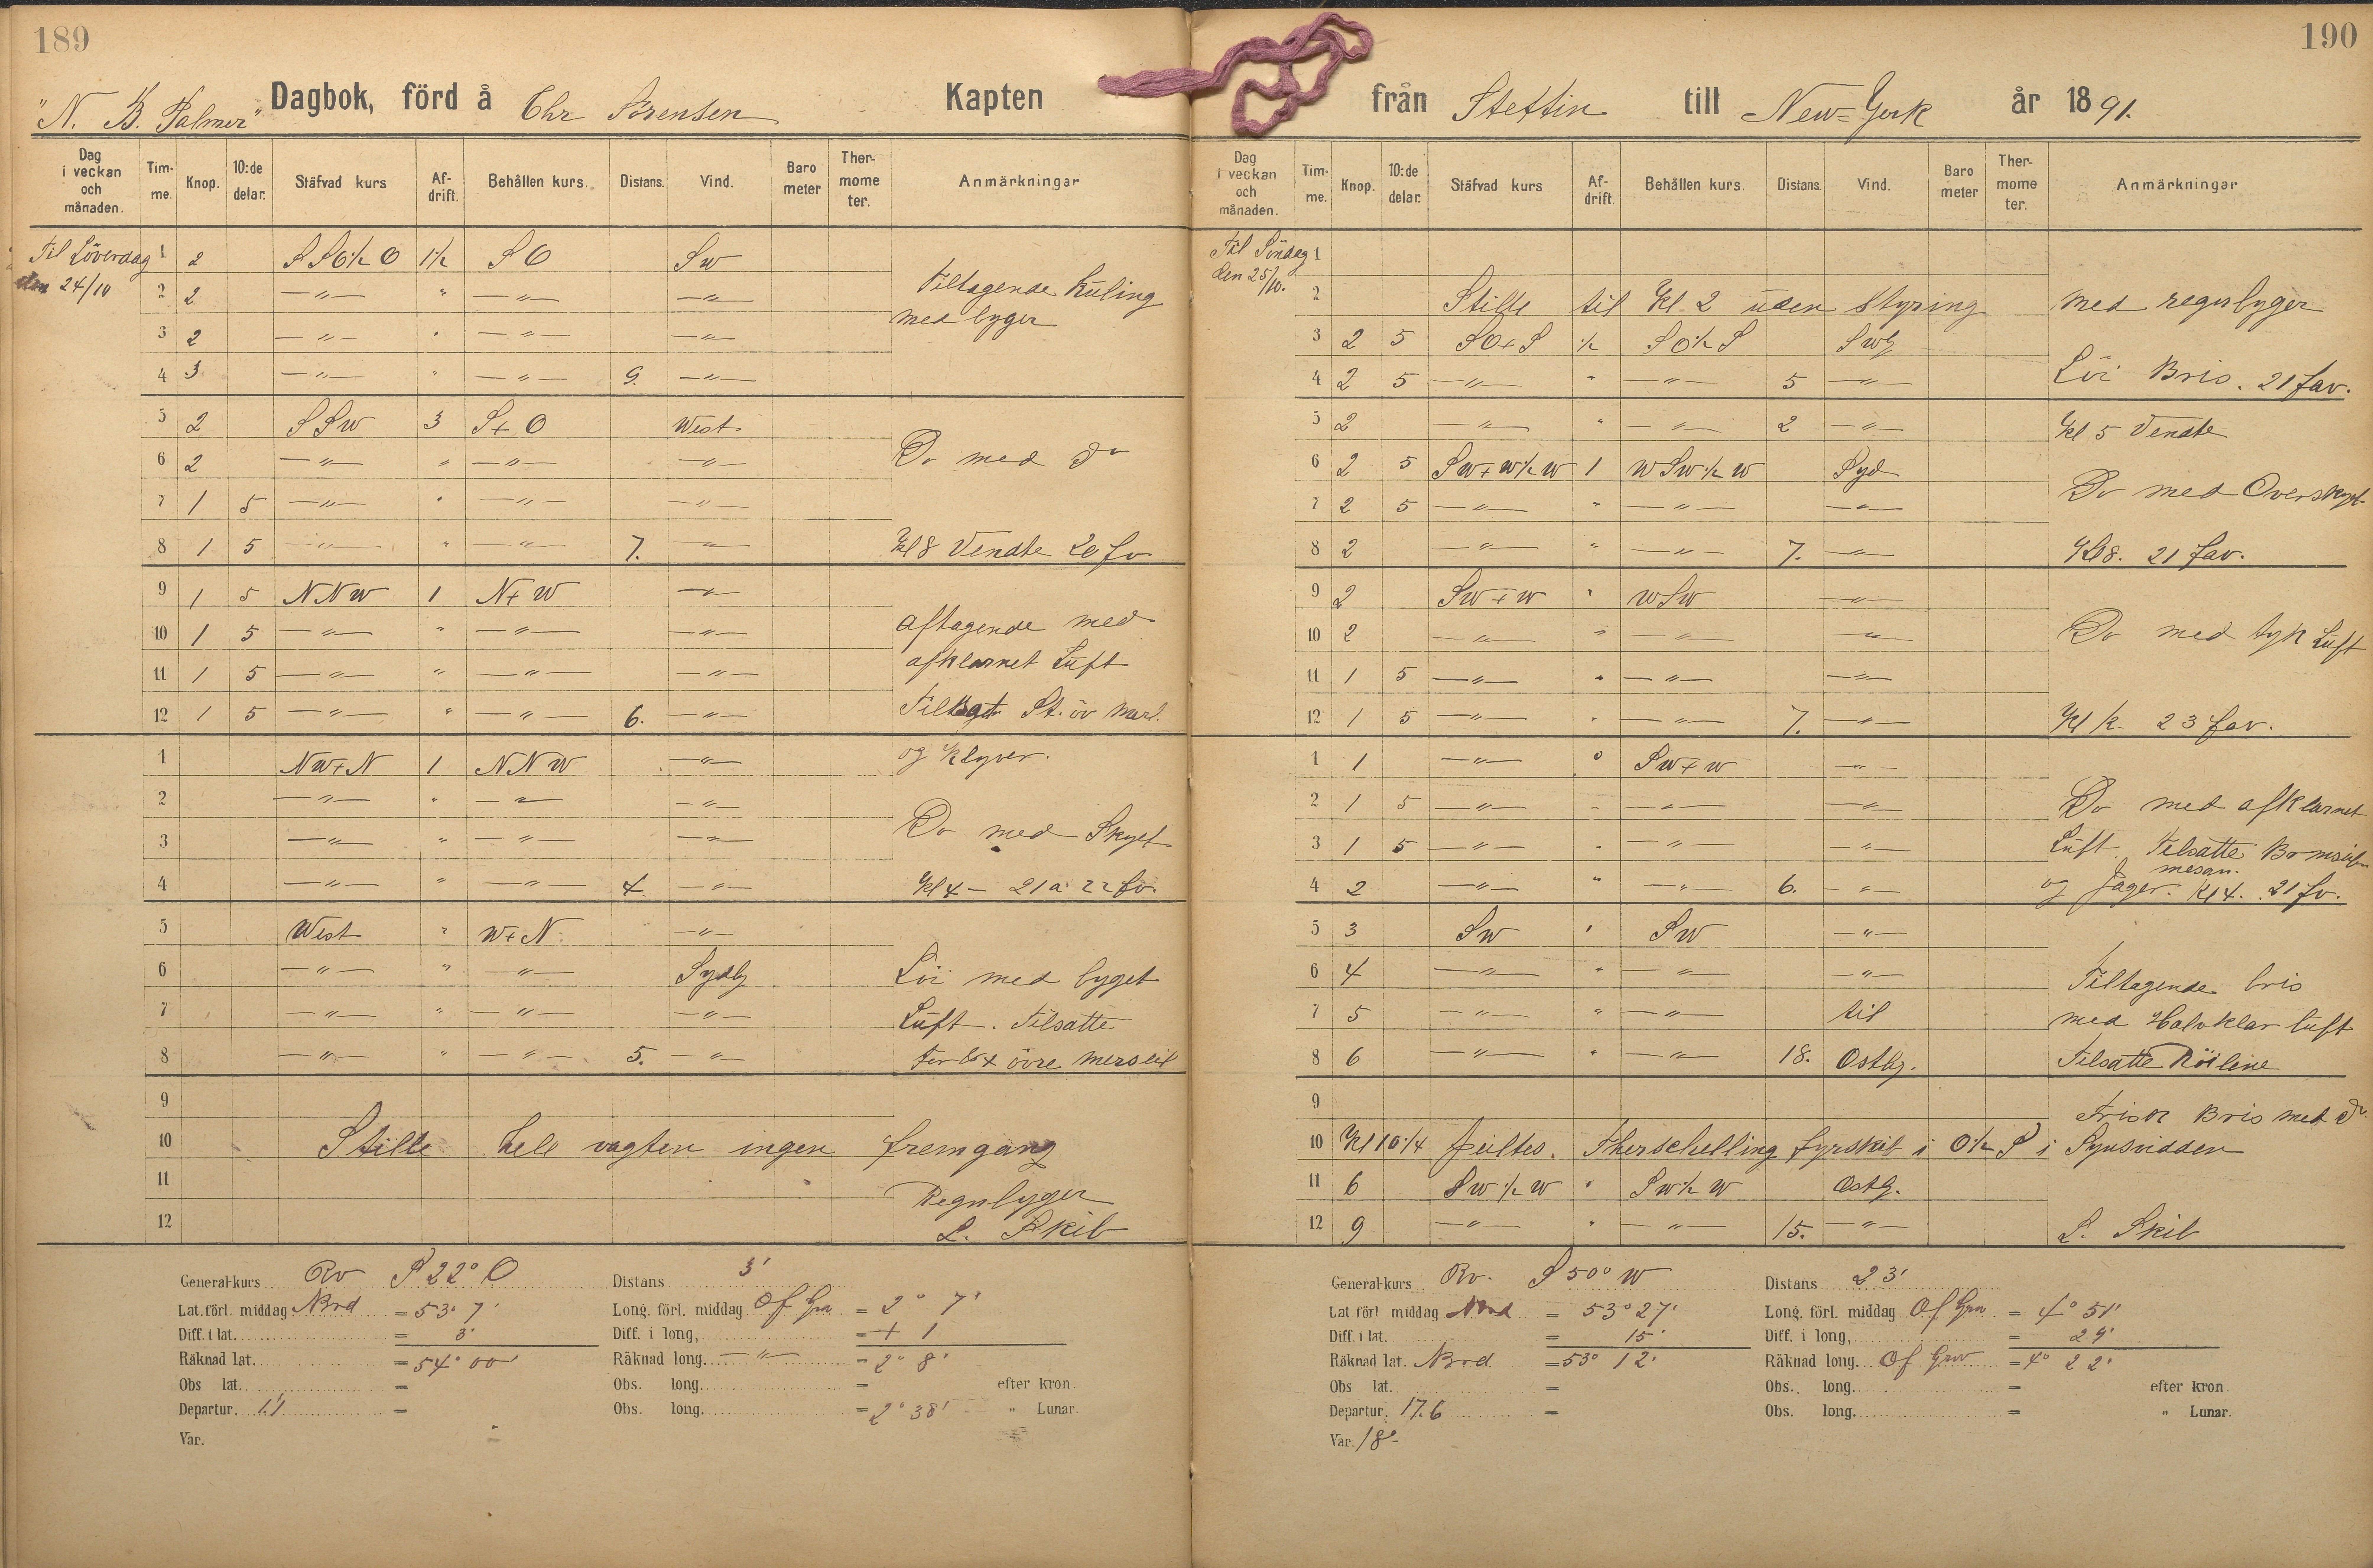 189
"N. B. Palmer" Dagbok, förd å Chr Sörensen Kapten
Dag i veckan och månaden. Tim-me. Knop. 10:de delar. Stäfvad kurs Af-drift. Behållen kurs. Distans. Vind. Baro meter Ther-mome ter. Anmärkningar
Til Löverdag 1 2 S S O ½ O 1½ S O Sw
den 24/10 2 2 —"— " —"— —"— Tiltagende Kuling
3 2 —"— " —"— —"— med byger
4 3 —"— " —"— 9. —"—
5 2 S S w 3 S + O West
6 2 —"— " —"— —"— Do med do
7 1 5 —"— " —"— —"—
8 1 5 —"— " —"— 7. —"— Kl 8 Vendte 20 fv
9 1 5 N N W 1 N + W —"—
10 1 5 —"— " —"— —"— aftagende med
11 1 5 —"— " —"— —"— afklarnet Luft
12 1 5 —"— " —"— 6. —"— St. öv Marl.
1 NW + N 1 N N W —"— og Klyver.
2 —"— " —"— —"—
3 —"— " —"— —"— Do med Skyet
4 —"— " —"— 4. —"— Kl 4 — 21 a 22 fv.
5 West " W + N —"—
6 —"— " —"— Sydlg Löi med byget
7 —"— " —"— —"— Luft. Tilsatte
8 —"— " —"— 5. —"— For & + övre Merseil
9
10 Stille hele vagten ingen fremgang
11 Regnbyger
12 L. Skib
General-kurs Rv S 22° O Distans 3'
Lat. förl. middag Nord = 53° 7' Long. förl. middag Of Grv = 2° 7'
Diff. i lat. = 3' Diff. i long, = + 1
Räknad lat. = 54° 00' Räknad long. —"— = 2° 8'
Obs lat. = Obs. long. = efter kron.
Departur. 1.1 = Obs. long. = 2° 38' " Lunar.
Var. =
190
från Stettin till New=York år 1891.
Dag i veckan och månaden. Tim-me. Knop. 10:de delar. Stäfvad kurs Af-drift. Behållen kurs. Distans. Vind. Baro meter Ther-mome ter. Anmärkningar
Til Söndag 1
den 25/10. 2 Stille til Kl 2 uden Styring med regnbyger
3 2 5 S O + S ½ S O ½ S Swlg
4 2 5 —"— " —"— 5 —"— Löi Bris. 21 fav.
5 2 —"— " —"— 2 —"— Kl 5 Vendte
6 2 5 Sw + w ½ w 1 w Sw ½ w Syd
7 2 5 —"— " —"— —"— Do med Overskyet
8 2 —"— " —"— 7. —"— Kl 8. 21 fav.
9 2 Sw + w " w Sw —"—
10 2 —"— " —"— —"— Do med tyk Luft
11 1 5 —"— " —"— —"—
12 1 5 —"— " —"— 7. —"— 23 fav.
1 1 —"— 0 Sw + w —"—
2 1 5 —"— " —"— —"— Do med afklarnet
3 1 5 —"— " —"— —"— Luft. Tilsatte Bramseil
mesan.
4 2 —"— " —"— 6. —"— og Jager. Kl 4. 21 fv.
5 3 Sw " Sw —"—
6 4 —"— " —"— —"— Tiltagende bris
7 5 —"— " —"— til med Halvklar luft
8 6 —"— " —"— 18. Ostlg. Tilsatte Röilene
9 Frisk Bris med do.
10 Kl 10 ¼ peiltes. Therschelling fyrskib i O ½ S i Synsvidden
11 6 Sw ½ w " Sw ½ w Ostlg.
12 9 —"— " —"— 15. —"— L. Skib
General-kurs Rv. S 50° W Distans 23'
Lat förl middag Nord = 53° 27' Long. förl. middag Of Grv = 4° 51'
Diff. i lat. = 15' Diff. i long, = 29'
Räknad lat. Nord = 53° 12' Räknad long. Of Grv = 4° 22'
Obs lat. = Obs., long. = efter kron.
Departur. 17.6 = Obs. long. = " Lunar.
Var. 18°